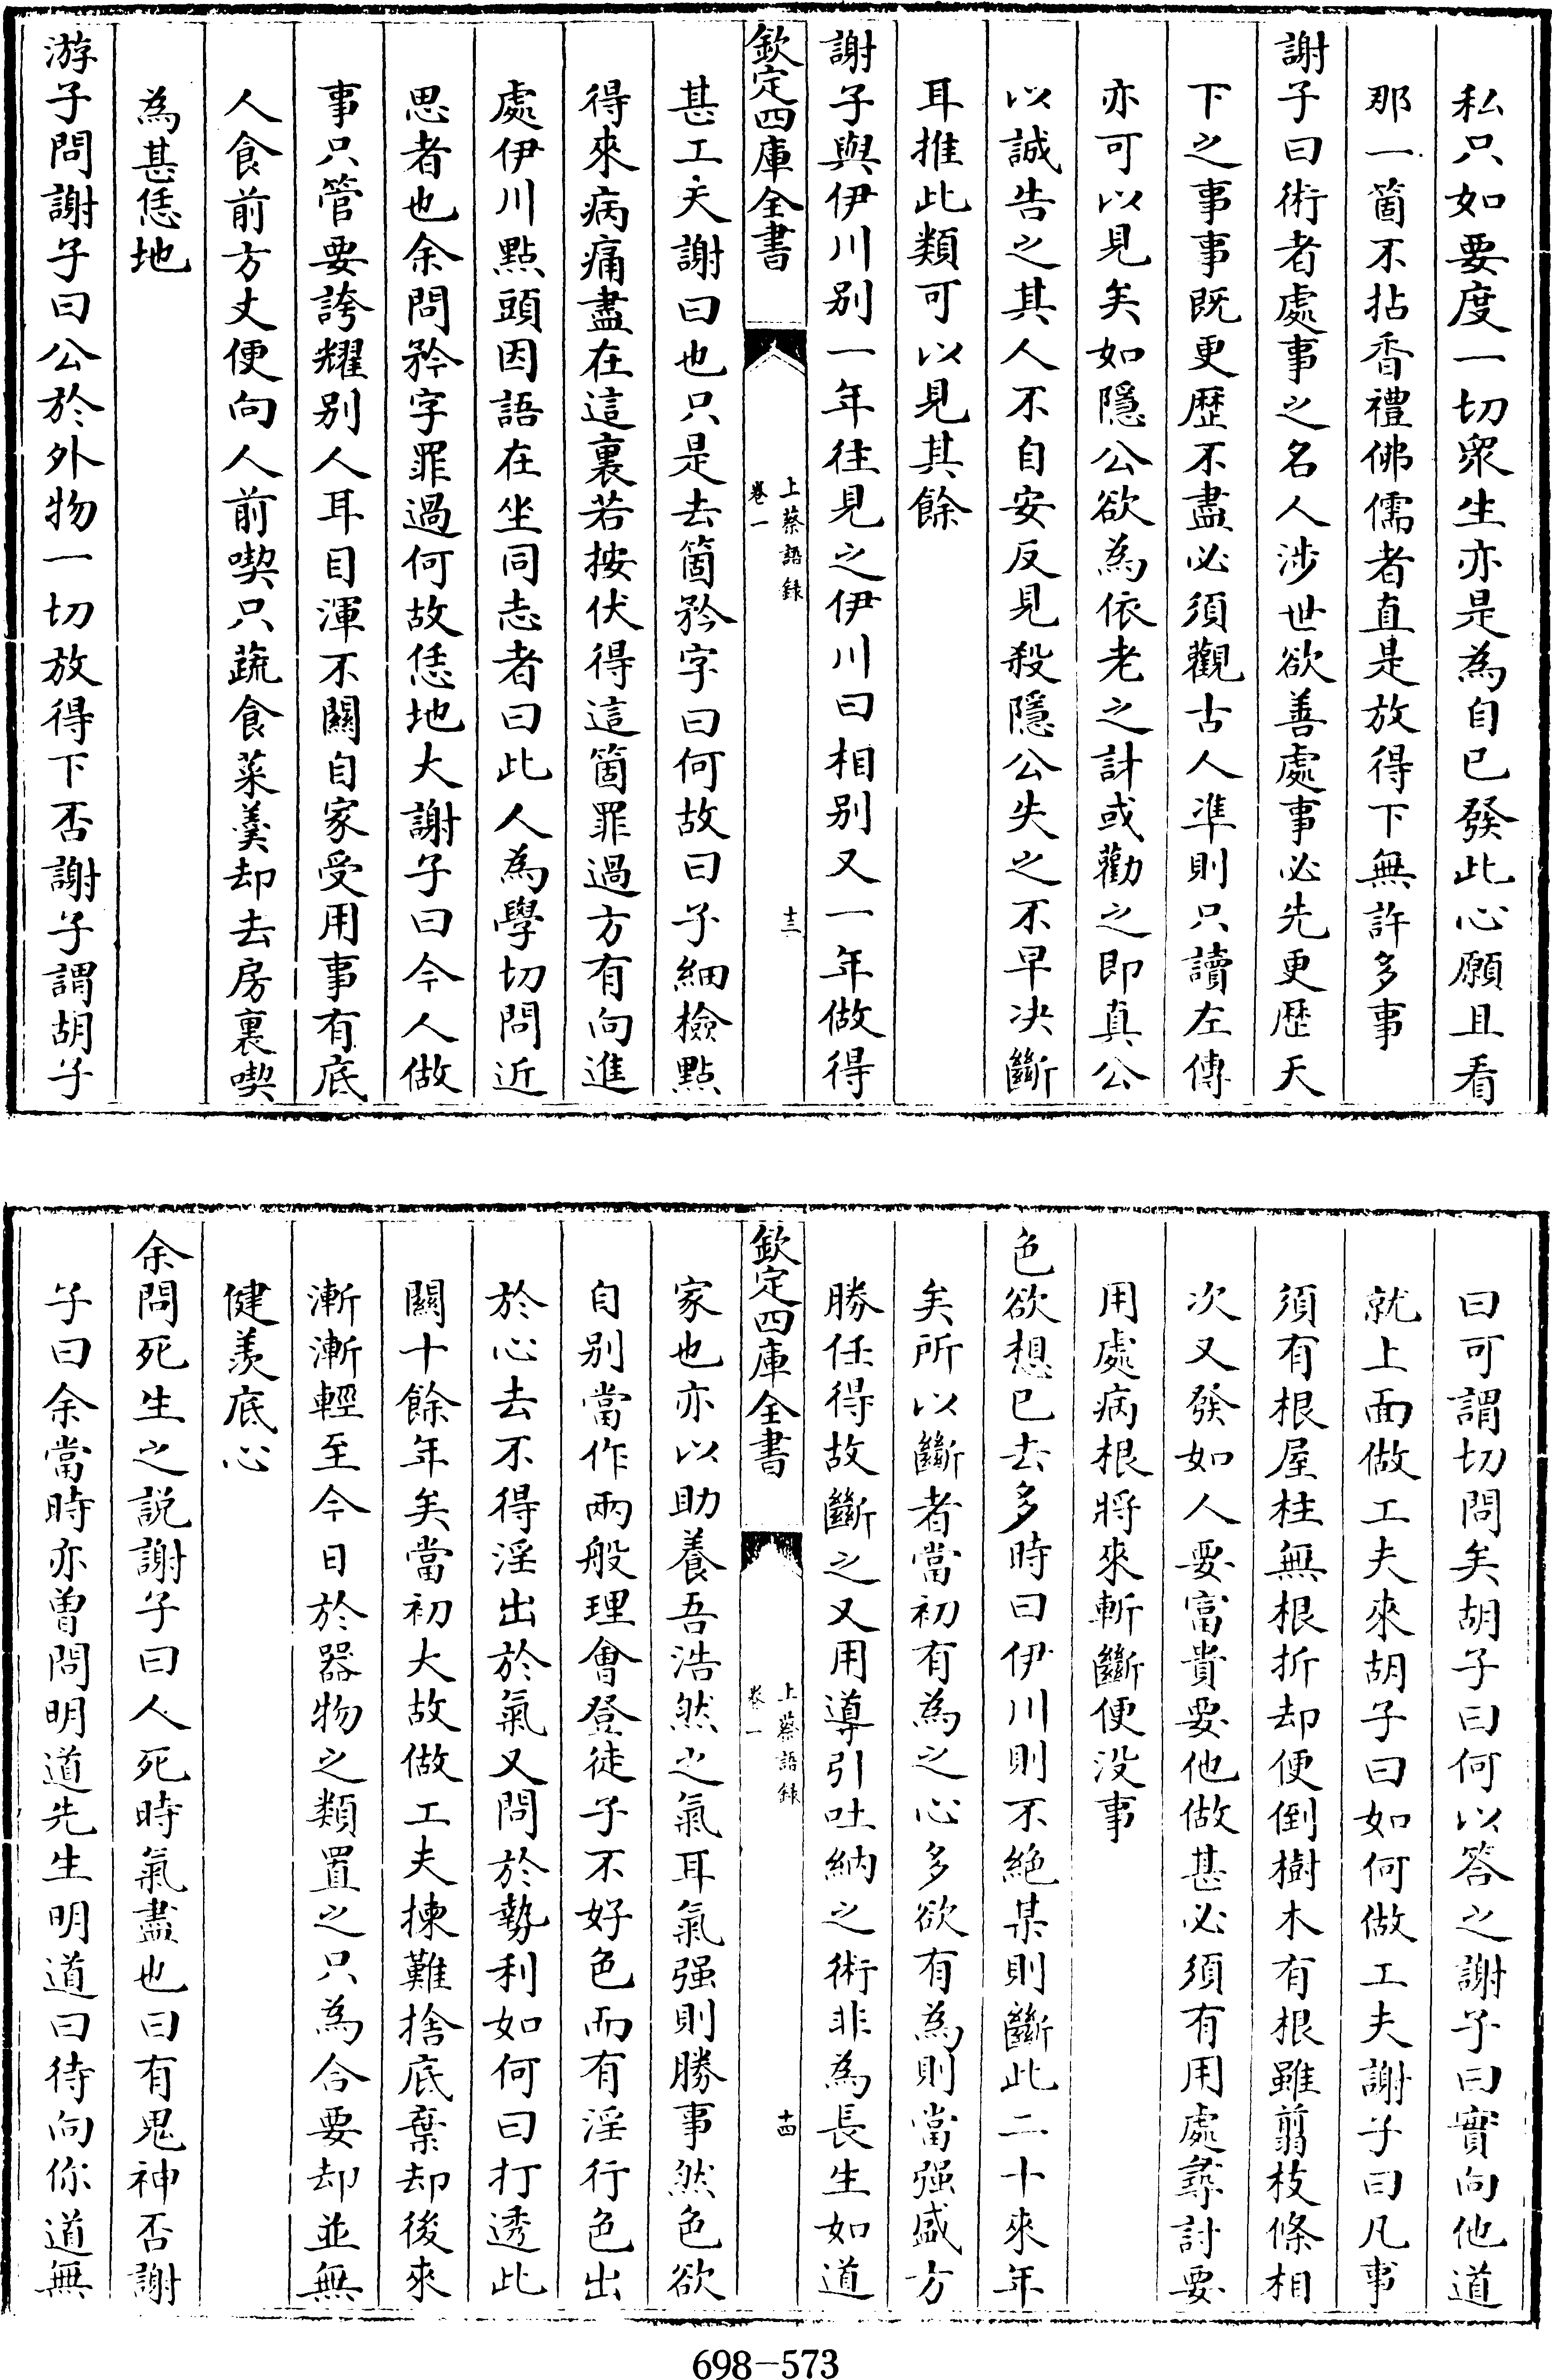 私只如要度一切衆生亦是為自已發此心願且看
那一箇不拈香禮佛儒者直是放得下無許多事
謝子曰術者處事之名人涉世欲善處事必先更歴天
下之事事既更歴不盡必須觀古人凖則只讀左傳
亦可以見矣如隱公欲為依老之計或勸之即真公
以誠告之其人不自安反見殺隱公失之不早决斷
耳推此類可以見其餘
謝子與伊川别一年往見之伊川曰相别又一年做得
欽定四庫全書
上蔡語録
卷一
十三
甚工夫謝曰也只是去箇矜字曰何故曰子細檢點
得來病痛盡在這裏若按伏得這箇罪過方有向進
處伊川點頭因語在坐同志者曰此人為學切問近
思者也余問矜字罪過何故恁地大謝子曰今人做
事只管要誇耀别人耳目渾不關自家受用事有底
人食前方丈便向人前喫只蔬食菜羮却去房裏喫
為甚恁地
游子問謝子曰公於外物一切放得下否謝子謂胡子
曰可謂切問矣胡子曰何以答之謝子曰實向他道
就上面做工夫來胡子曰如何做工夫謝子曰凡事
須有根屋柱無根折却便倒樹木有根雖翦枝條相
次又發如人要富貴要他做甚必須有用處尋討要
用處病根將來斬斷便沒事
色欲想已去多時曰伊川則不絶某則斷此二十來年
矣所以斷者當初有為之心多欲有為則當强盛方
勝任得故斷之又用導引吐納之術非為長生如道
欽定四庫全書
上蔡語録
卷一
十四
家也亦以助養吾浩然之氣耳氣强則勝事然色欲
自别當作兩般理會登徒子不好色而有淫行色出
於心去不得淫出於氣又問於勢利如何曰打透此
關十餘年矣當初大故做工夫揀難捨底棄却後來
漸漸輕至今日於器物之類置之只為合要却並無
健羨底心
余問死生之説謝子曰人死時氣盡也曰有鬼神否謝
子曰余當時亦曽問明道先生明道曰待向你道無
698-573